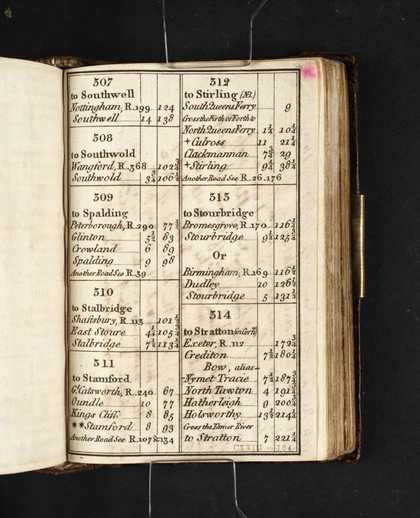 507
to Southwell
Nottingham, R. 199 124
Southwell 14 138
508
to Southwold
Wangford, R. 368 102¾
Southwold 3¾ 106½
509
to Spalding
Peterborough, R. 290 77½
Glinton 5½ 83
Crowland 6 89
Spalding 9 98
Another Road See R. 39
510
to Stalbridge
Shaftsbury, R. 113 101¼
East Stoure 4¼ 105½
Stalbridge 7¾ 113¼
511
to Stamford
Gt. Catsworth, R. 240 67
Oundle 10 77
Kings Cliff 8 85
**Stamford 8 93
Another Road See R. 107 & 134
512
to Stirling (NB.)
South Queens Ferry 9
Cross the Firth of Forth to
North Queens Ferry 1¼ 10¼
+Culross 11 21¼
Clackmannan 7¾ 29
+Stirling 9¼ 38¼
Another Road See R. 26. 176
513
to Stourbridge
Bromesgrove, R. 170 116½
Stourbridge 9¼ 125¾
Or
Birmingham, R. 169 116¼
Dudley 10 126¼
Stourbridge 5 131¼
514
to Stratton (in Corn.)
Exeter, R. 112 172¾
Crediton 7¾ 180½
Bow, alias
Nymet Tracie 7¼ 187¾
North Tawton 4 191¾
Hatherleigh 9 200¾
Holsworthy 13¾ 214½
Cross the Tamer River
to Stratton 7 221½